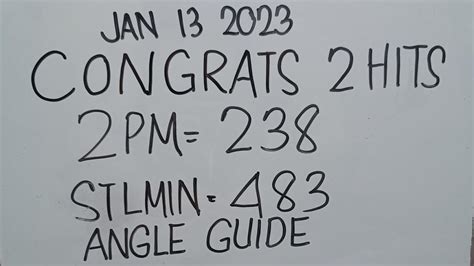 JAN 13 2023
CONGRATS 2 HITS
2PM= 238
STLMIN= 483
ANGLE GUIDE